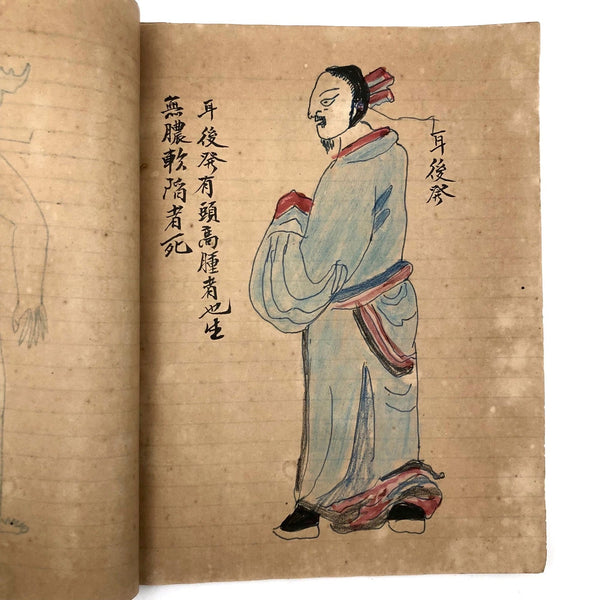 耳後發
耳後發有頭高腫者也生
無膿軟陷者死